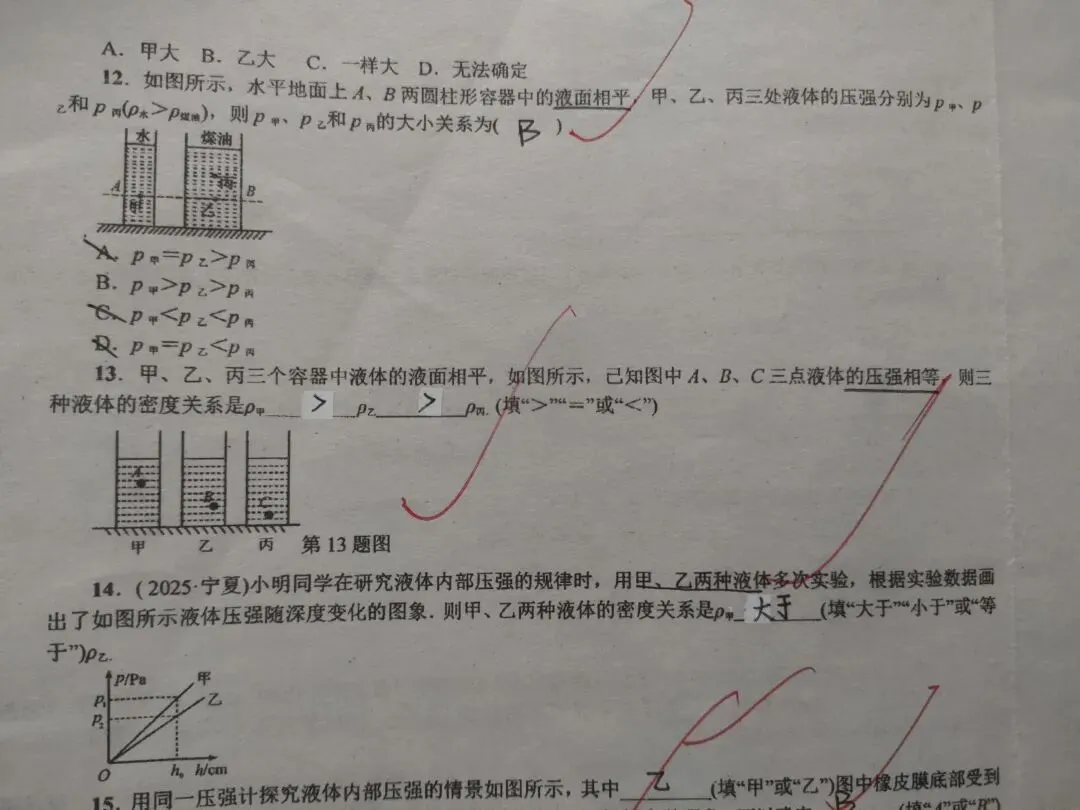 A. 甲大 B. 乙大 C. 一样大 D. 无法确定
12. 如图所示，水平地面上A、B两圆柱形容器中的液面相平，甲、乙、丙三处液体的压强分别为p甲、p
乙和p丙(ρ水>ρ煤油)，则p甲、p乙和p丙的大小关系为( B )
水 煤油
丙
A B
甲 乙
A. p甲=p乙>p丙
B. p甲>p乙>p丙
C. p甲<p乙<p丙
D. p甲=p乙<p丙
13. 甲、乙、丙三个容器中液体的液面相平，如图所示，已知图中A、B、C三点液体的压强相等，则三
种液体的密度关系是ρ甲 > ρ乙 > ρ丙. (填“>”“=”或“<”)
A B C
甲 乙 丙 第13题图
14. (2025·宁夏)小明同学在研究液体内部压强的规律时，用甲、乙两种液体多次实验，根据实验数据画
出了如图所示液体压强随深度变化的图象. 则甲、乙两种液体的密度关系是ρ甲 大于 (填“大于”“小于”或“等
于”)ρ乙.
p/Pa 甲
p₁ 乙
p₂
O h₀ h/cm
15. 用同一压强计探究液体内部压强的情景如图所示，其中 乙 (填“甲”或“乙”)图中橡皮膜底部受到
B (填“A”或“B”